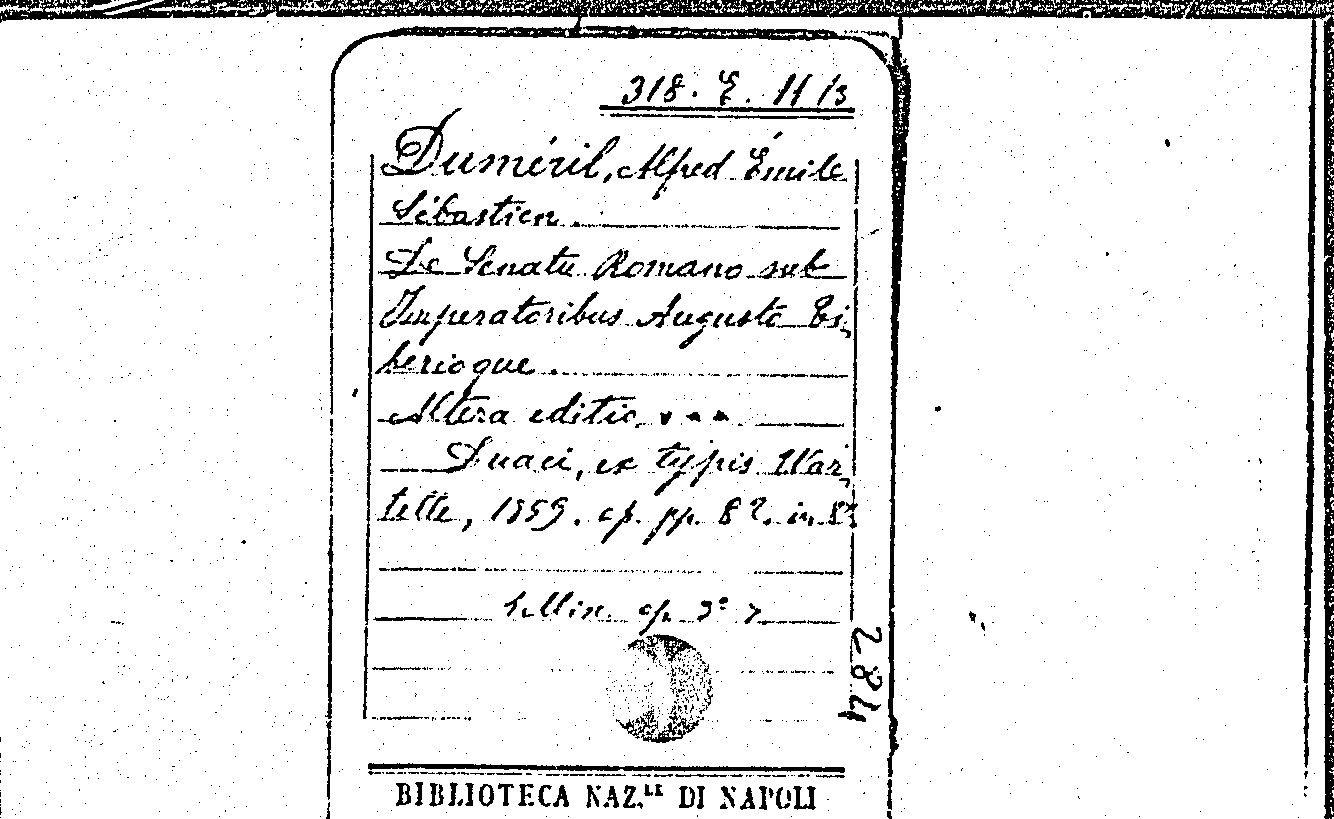 318. E. 11/3
Duméril, Alfred Émile
Sébastien.
De Senatu Romano sub
Imperatoribus Augusto Ti-
berioque.
Altera editio...
Duaci, ex typis War-
telle, 1859. op. pp. 82. in 8º
op. 3º 7
284
BIBLIOTECA NAZ.LE DI NAPOLI